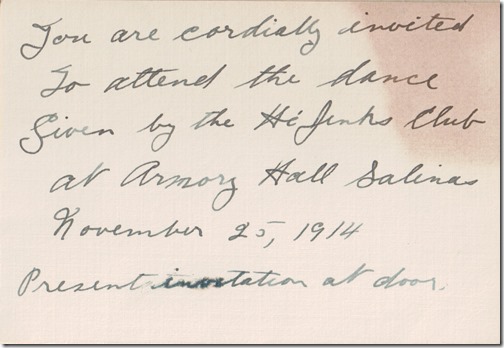 You are cordially invited
To attend the dance
Given by the Hi Jinks Club
at Armory Hall Salinas
November 25, 1914
Present invitation at door.